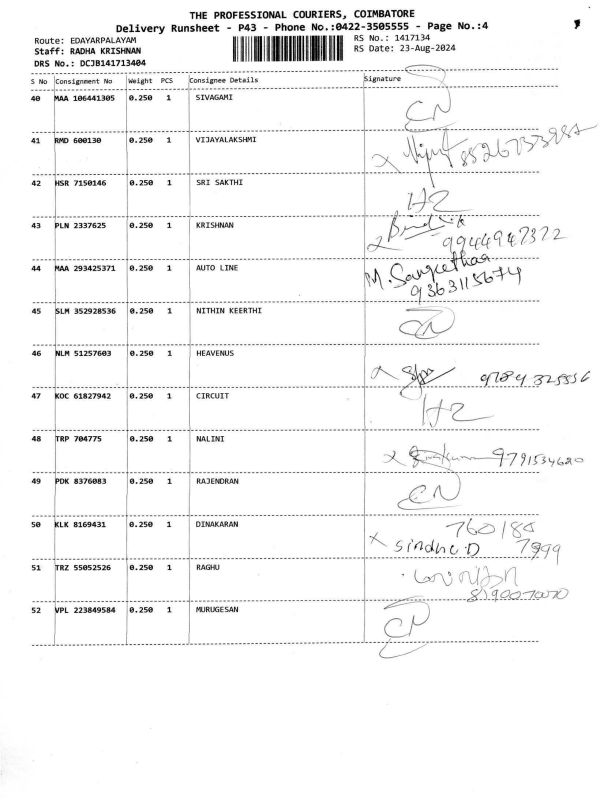 THE PROFESSIONAL COURIERS, COIMBATORE
Delivery Runsheet - P43 - Phone No.:0422-3505555 - Page No.:4
Route: EDAYARPALAYAM RS No.: 1417134
Staff: RADHA KRISHNAN RS Date: 23-Aug-2024
DRS No.: DCJB141713404
S No Consignment No Weight PCS Consignee Details Signature
40 MAA 106441305 0.250 1 SIVAGAMI CN
41 RMD 600130 0.250 1 VIJAYALAKSHMI
42 HSR 7150146 0.250 1 SRI SAKTHI HZ
43 PLN 2337625 0.250 1 KRISHNAN
9944947372
44 MAA 293425371 0.250 1 AUTO LINE M. Sangeethaa
9363115674
45 SLM 352928536 0.250 1 NITHIN KEERTHI CN
46 NLM 51257603 0.250 1 HEAVENUS
47 KOC 61827942 0.250 1 CIRCUIT HZ
48 TRP 704775 0.250 1 NALINI 9791534620
49 PDK 8376083 0.250 1 RAJENDRAN CN
50 KLK 8169431 0.250 1 DINAKARAN 760184
x Sindhu.D 7999
51 TRZ 55052526 0.250 1 RAGHU
8190070070
52 VPL 223849584 0.250 1 MURUGESAN CN